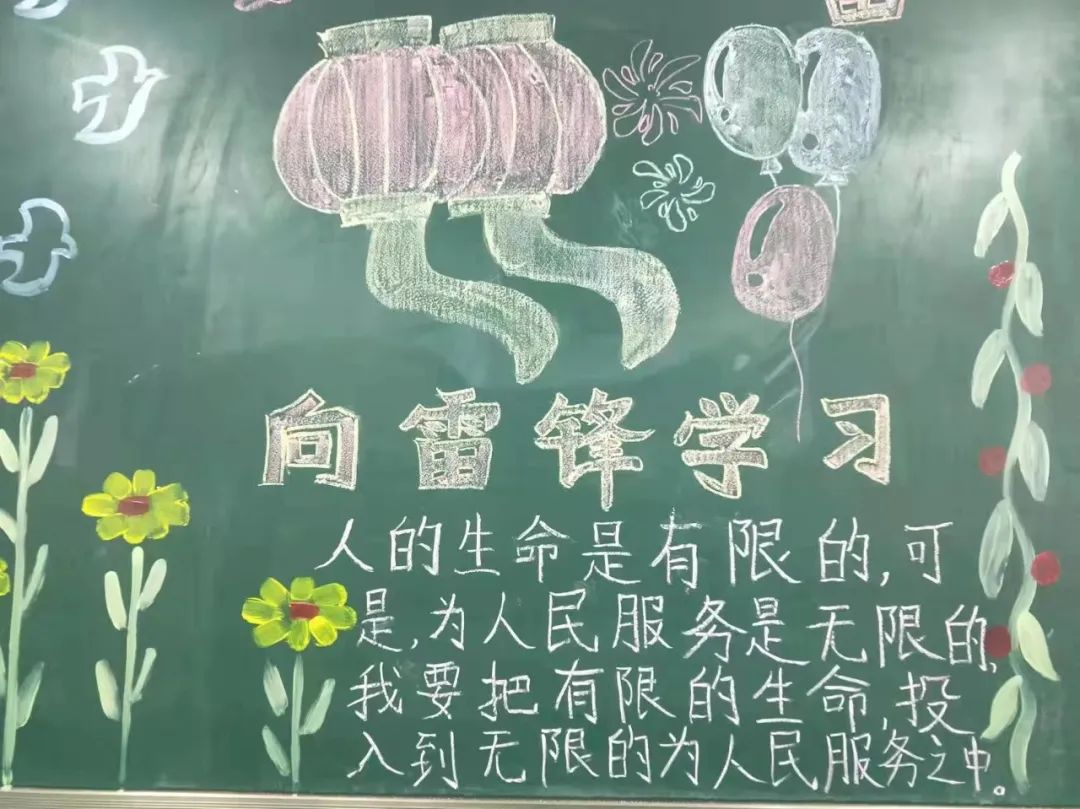 向雷锋学习
人的生命是有限的,可
是,为人民服务是无限的,
我要把有限的生命,投
入到无限的为人民服务之中。